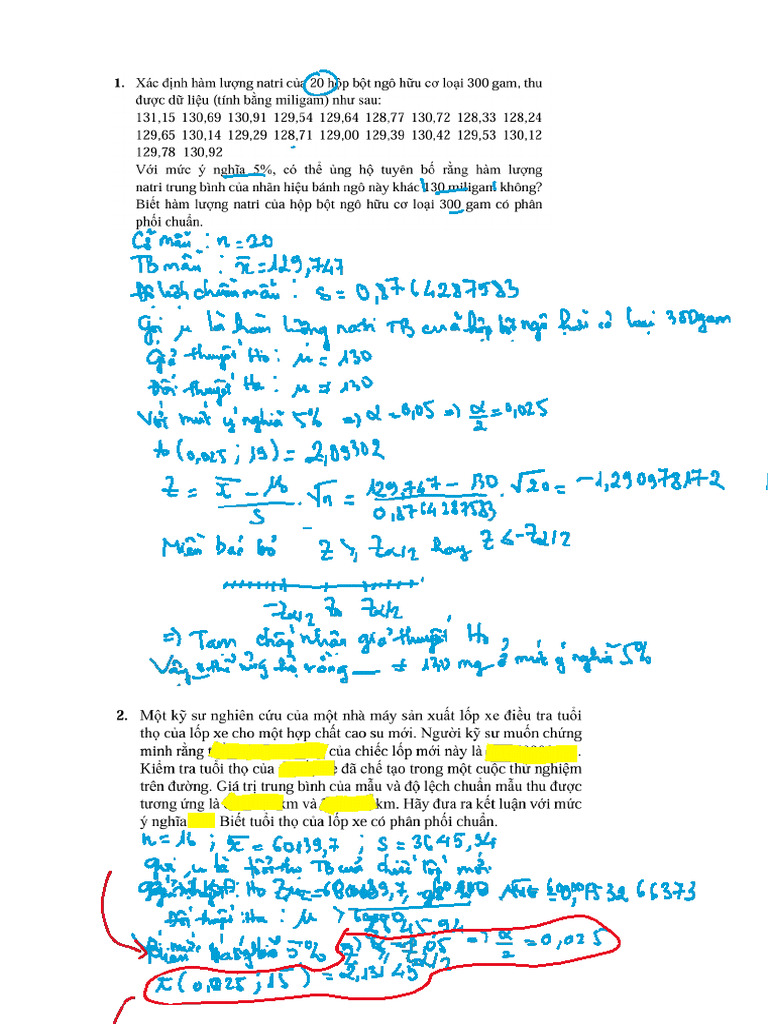 1. Xác định hàm lượng natri của 20 hộp bột ngô hữu cơ loại 300 gam, thu
được dữ liệu (tính bằng miligam) như sau:
131,15 130,69 130,91 129,54 129,64 128,77 130,72 128,33 128,24
129,65 130,14 129,29 128,71 129,00 129,39 130,42 129,53 130,12
129,78 130,92
Với mức ý nghĩa 5%, có thể ủng hộ tuyên bố rằng hàm lượng
natri trung bình của nhãn hiệu bánh ngô này khác 130 miligam không?
Biết hàm lượng natri của hộp bột ngô hữu cơ loại 300 gam có phân
phối chuẩn.
Cỡ mẫu : n = 20
TB mẫu : x̄ = 129,747
Độ lệch chuẩn mẫu : s = 0,8764287583
Gọi μ là hàm lượng natri TB của hộp bột ngô hữu cơ loại 300gam
Giả thuyết H₀ : μ = 130
Đối thuyết Hₐ : μ ≠ 130
Với mức ý nghĩa 5% => α = 0,05 => α/2 = 0,025
t₀(0,025 ; 19) = 2,09302
Z = (x̄ - μ₀)/s . √n = (129,747 - 130)/0,8764287583 . √20 = -1,290978172
Miền bác bỏ Z ⩾ Zα/2 hay Z ≤ -Zα/2
-Zα/2 Z₀ Zα/2
=) Tạm chấp nhận giả thuyết H₀
Vậy thể ủng hộ rằng __ ≠ 130 mg ở mức ý nghĩa 5%
2. Một kỹ sư nghiên cứu của một nhà máy sản xuất lốp xe điều tra tuổi
thọ của lốp xe cho một hợp chất cao su mới. Người kỹ sư muốn chứng
minh rằng của chiếc lốp mới này là
Kiểm tra tuổi thọ của đã chế tạo trong một cuộc thử nghiệm
trên đường. Giá trị trung bình của mẫu và độ lệch chuẩn mẫu thu được
tương ứng là km và km. Hãy đưa ra kết luận với mức
ý nghĩa Biết tuổi thọ của lốp xe có phân phối chuẩn.
n = 16 ; x̄ = 60139,7 ; s = 3645,94
Gọi μ là tuổi thọ TB của chiếc lốp mới
H₀ 1532 66373
Đối thuyết Hₐ : μ > 60000
5% => α/2 = 0,025
t(0,025 ; 15) = 2,13145